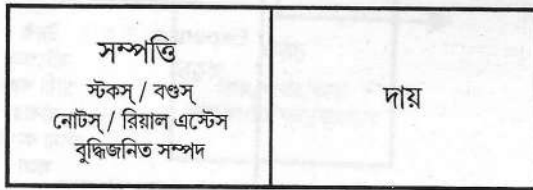 সম্পত্তি
স্টকস্ / বণ্ডস্
নোটস্ / রিয়াল এস্টেস
বুদ্ধিজনিত সম্পদ
দায়